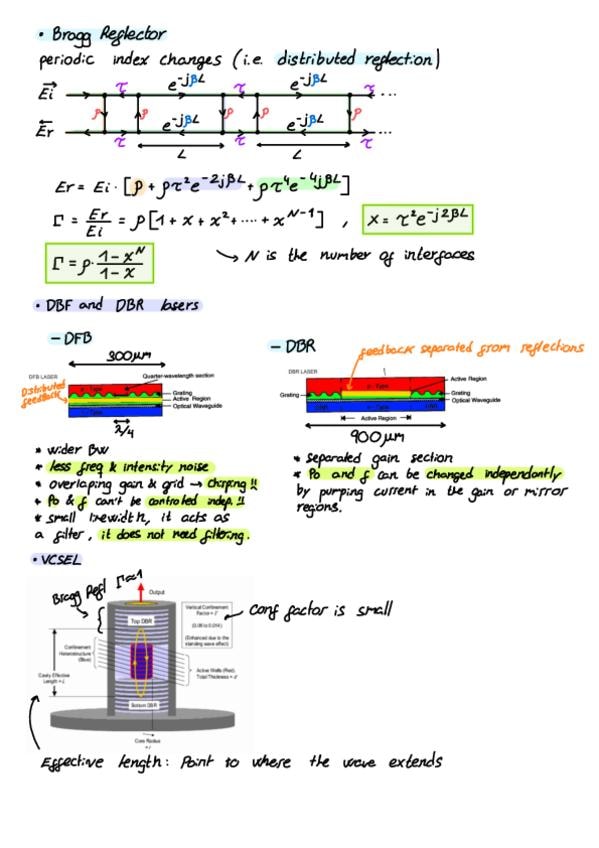 • Bragg Reglector
periodic index changes (i.e. distributed reglection)
Ei τ e^-jβL τ e^-jβL τ ...
ρ ρ ρ ρ ρ
Er τ e^-jβL τ e^-jβL τ ...
L L
Er = Ei · [ρ + ρτ²e^-2jβL + ρτ⁴e^-4jβL]
Γ = Er/Ei = ρ[1 + x + x² + ···· + x^N-1] , x = τ²e^-j2βL
Γ = ρ · 1-x^N / 1-x
↳ N is the number of interfaces
• DBF and DBR lasers
- DFB
300μm
DFB LASER
Quarter-wavelength section
Distributed feedback
Grating
Active Region
Optical Waveguide
λ/4
* wider BW
* less freq & intensity noise
* overlaping gain & grid → chirping!!
* Po & f can't be controled indep.!!
* small linewidth, it acts as
a filter, it does not need filtering.
- DBR
feedback separated from reflections
DBR LASER
Active Region
Grating
Grating
Optical Waveguide
Active Region
900μm
* separated gain section
* Po and f can be changed independently
by pumping current in the gain or mirror
regions.
• VCSEL
Bragg Refl Γ≈1
Output
Top DBR
Vertical Confinement
(Enhanced due to the
standing wave effect)
conf factor is small
Confinement
Heterostructure
(Blue)
Cavity Effective
Length = L
Active Wells (Red)
Bottom DBR
Core Radius
Effective length: Point to where the wave extends